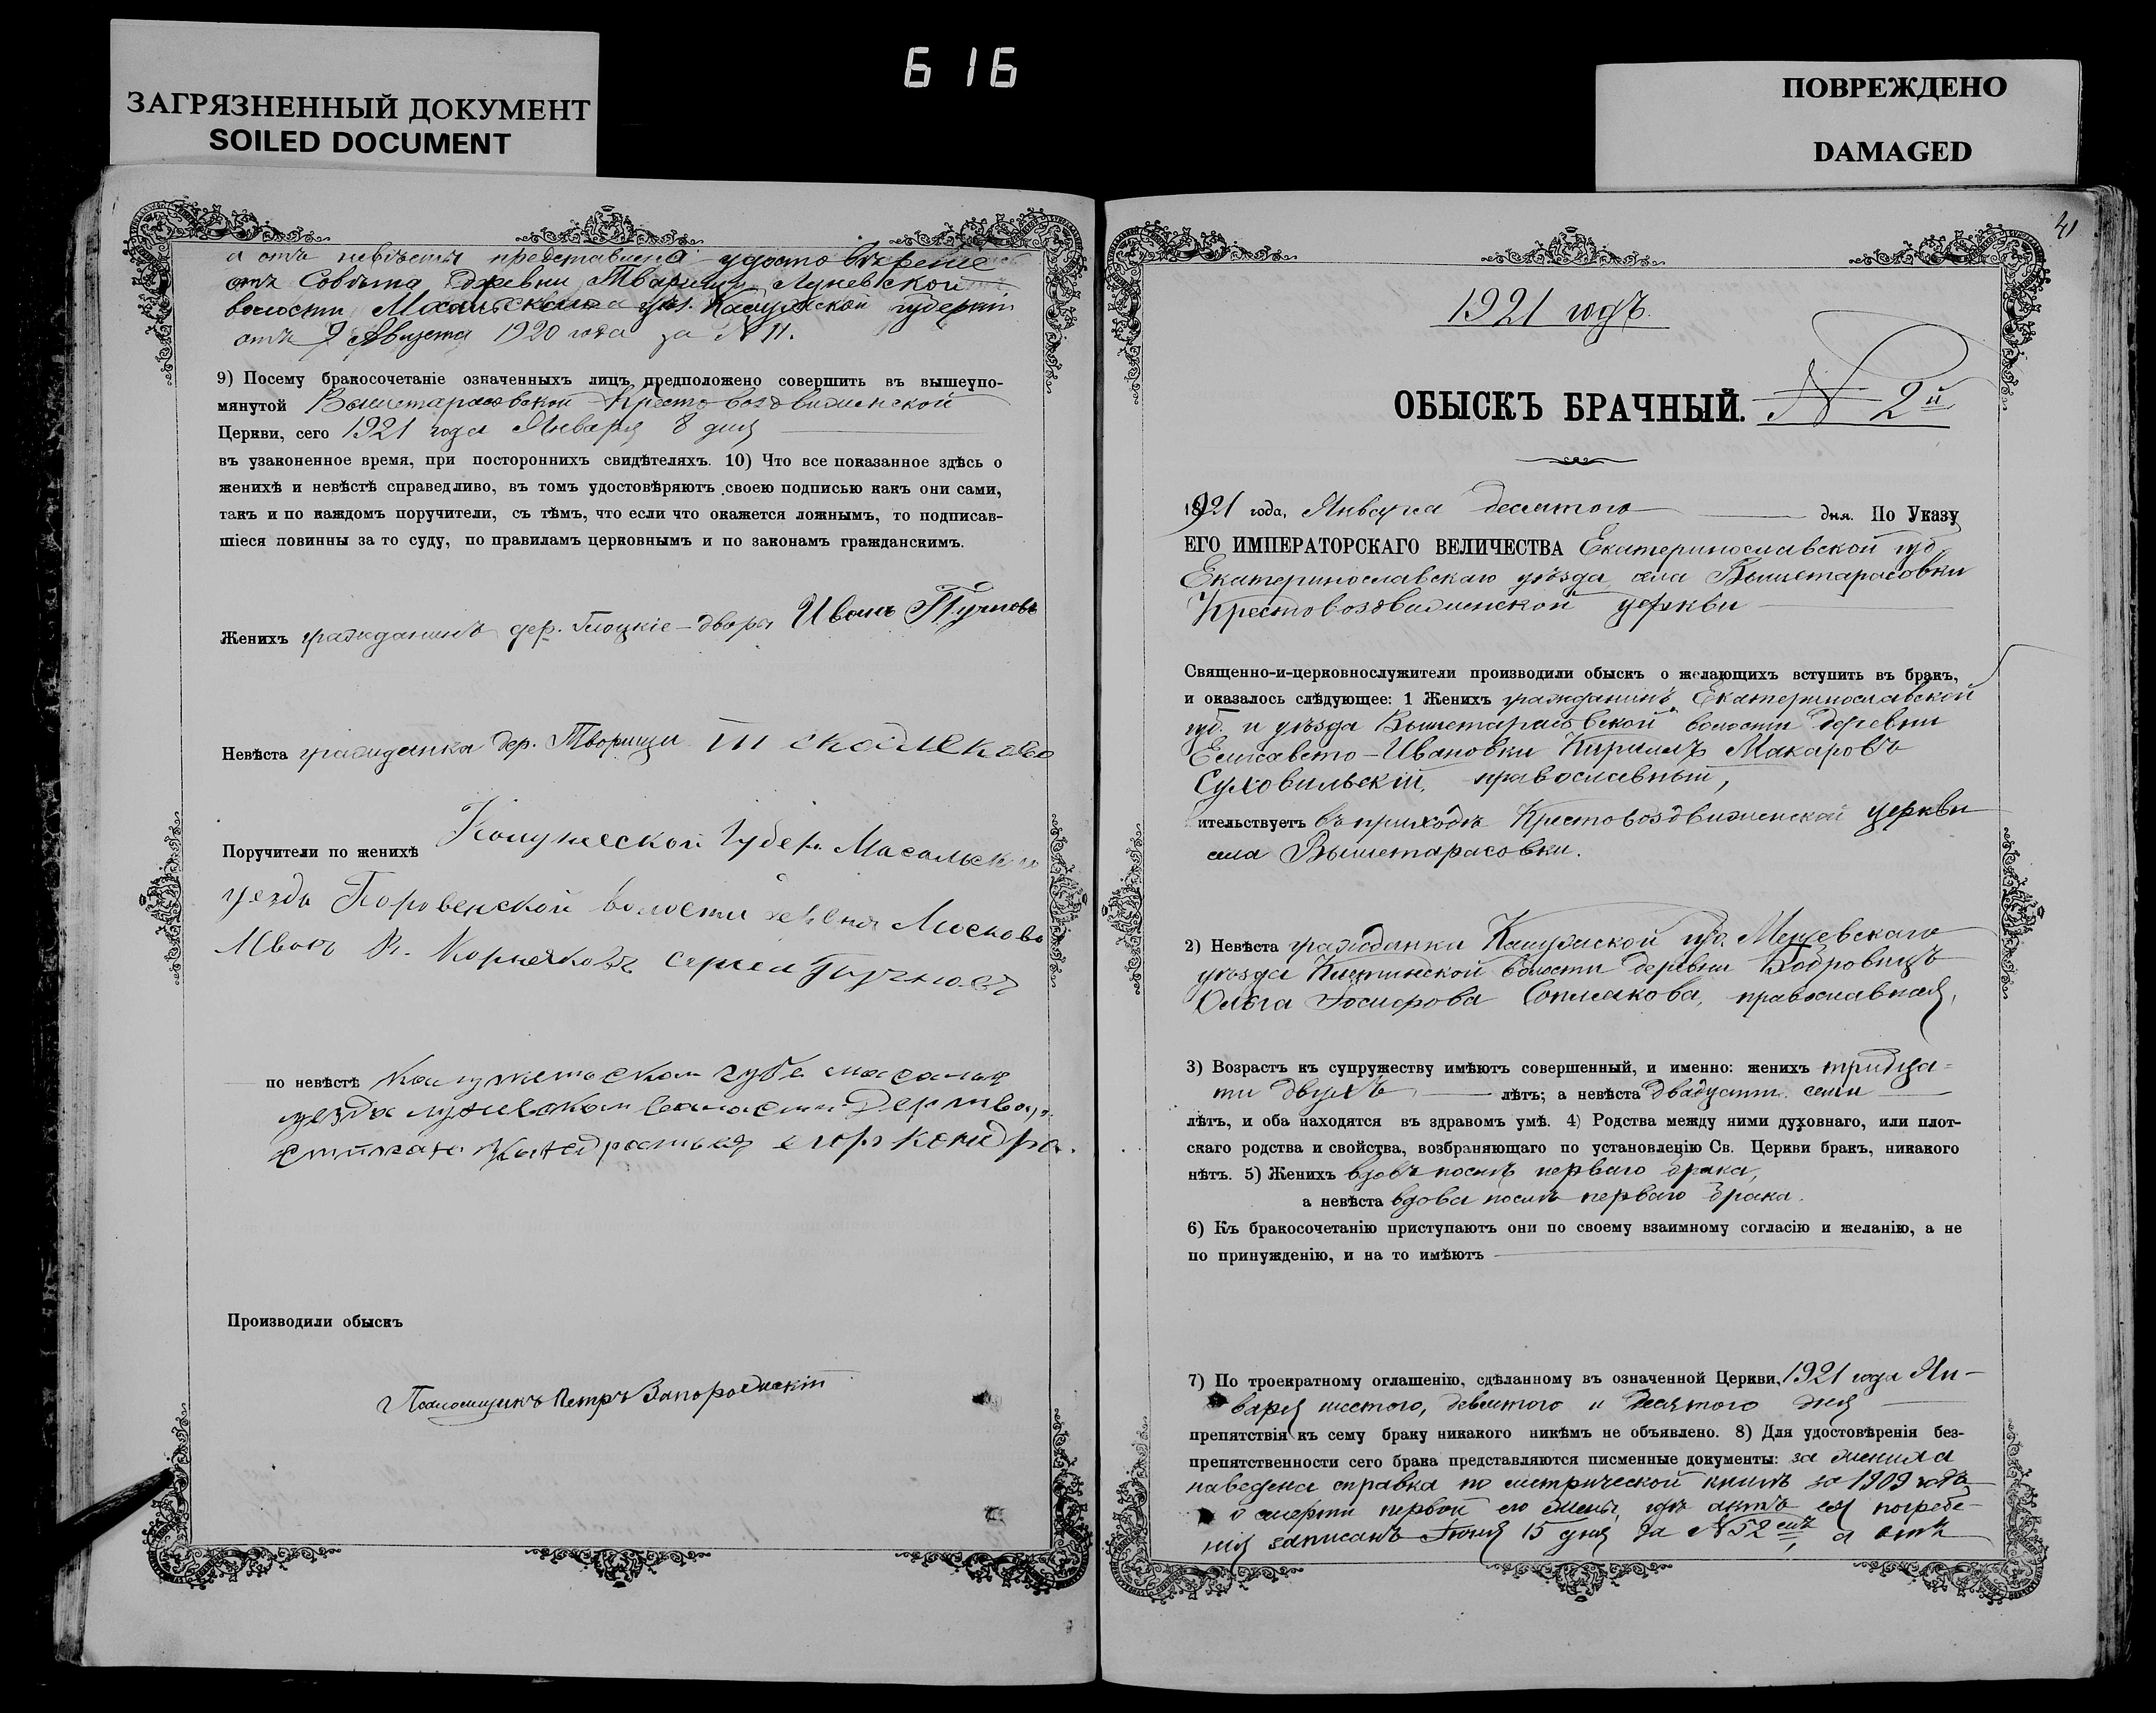 616
ЗАГРЯЗНЕННЫЙ ДОКУМЕНТ
SOILED DOCUMENT
ПОВРЕЖДЕНО
DAMAGED
а отъ невѣсты представлено удостовѣреніе
отъ Совѣта деревни Луневской
волости Масальскаго уѣз. Калужской губерніи
отъ 9 Августа 1920 года за № 11.
9) Посему бракосочетаніе означенныхъ лицъ предположено совершить въ вышеупо-
мянутой Вышетарасовской Кресто воздвиженской
Церкви, сего 1921 года Января 8 дня
въ узаконенное время, при постороннихъ свидѣтеляхъ. 10) Что все показанное здѣсь о
женихѣ и невѣстѣ справедливо, въ томъ удостовѣряютъ своею подписью какъ они сами,
такъ и по каждомъ поручители, съ тѣмъ, что если что окажется ложнымъ, то подписав-
шіеся повинны за то суду, по правиламъ церковнымъ и по законамъ гражданскимъ.
Женихъ гражданинъ дер. двора Иванъ
Невѣста гражданка дер. Творищи
Поручители по женихѣ Калужской Губер. Масальск
уезда волости
Сергей
по невѣстѣ
уезда
егор
Производили обыскъ
Псаломщикъ Петръ Запорожскій
41
1921 годъ.
ОБЫСКЪ БРАЧНЫЙ. № 2й
1921 года, Января десятого дня. По Указу
ЕГО ИМПЕРАТОРСКАГО ВЕЛИЧЕСТВА Екатеринославской губ.
Екатеринославскаго уѣзда села Вышетарасовки
Крестовоздвиженской церкви
Священно-и-церковнослужители производили обыскъ о желающихъ вступить въ бракъ,
и оказалось слѣдующее: 1 Женихъ гражданинъ Екатеринославской
губ. и уѣзда Вышетарасовской волости деревни
Елисавето-Ивановки Кириллъ Макаровъ
Суховильскій, православный,
ительствуетъ въ приходѣ Крестовоздвиженской церкви
села Вышетарасовки.
2) Невѣста гражданка Калужской губ. Мещевскаго
уѣзда волости деревни
Ольга Іосифова православная,
3) Возрастъ къ супружеству имѣютъ совершенный, и именно: женихъ тридца-
ти двухъ лѣтъ; а невѣста двадцати семи
лѣтъ, и оба находятся въ здравомъ умѣ. 4) Родства между ними духовнаго, или плот-
скаго родства и свойства, возбраняющаго по установленію Св. Церкви бракъ, никакого
нѣтъ. 5) Женихъ вдовъ послѣ перваго брака,
а невѣста вдова послѣ перваго брака.
6) Къ бракосочетанію приступаютъ они по своему взаимному согласію и желанію, а не
по принужденію, и на то имѣютъ
7) По троекратному оглашенію, сдѣланному въ означенной Церкви, 1921 года Ян-
варя шестого, девятого и десятого дня
препятствія къ сему браку никакого никѣмъ не объявлено. 8) Для удостовѣренія без-
препятственности сего брака представляются писменные документы: за жениха
наведена справка по метрической книгѣ за 1909 годъ
о смерти первой его жены, гдѣ актъ ея погребе-
нія записанъ Іюня 15 дня за № 52 а отъ